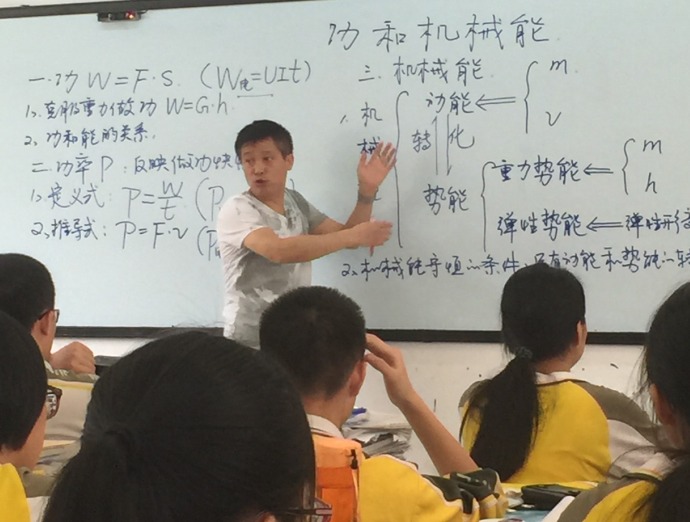 功和机械能
一.功 W=F·S. (W电=UIt)
1、克服重力做功 W=G·h.
2、功和能的关系.
二.功率 P:反映做功快
1、定义式: P=W/t (P
2、推导式: P=F·v (P
三.机械能.
1、机械
动能 ⇐ { m v
转化
势能
重力势能 ⇐ { m h
弹性势能 ⇐ 弹性形变
2、机械能守恒的条件:只有动能和势能的转